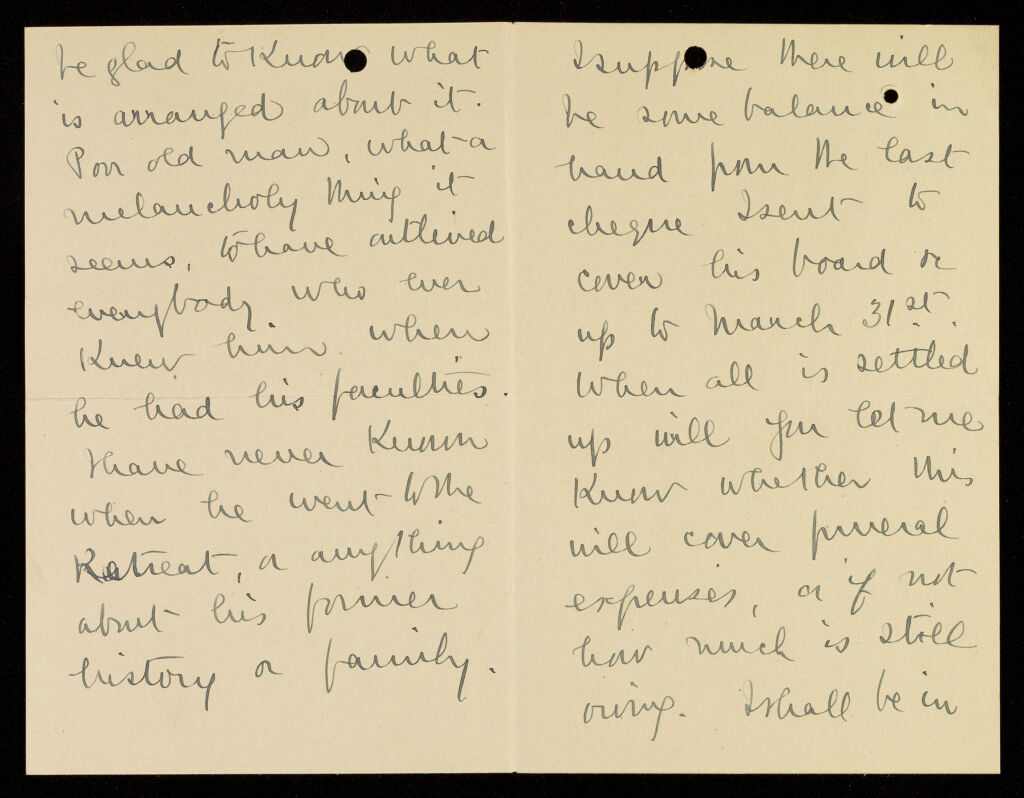 be glad to know what
is arranged about it.
Poor old man, what a
melancholy thing it
seems, to have outlived
everybody who ever
knew him when
he had his faculties.
I have never known
when he went to the
Retreat, or anything
about his former
history or family.
I suppose there will
be some balance in
hand from the last
cheque I sent to
cover his board &c
up to March 31st.
When all is settled
up will you let me
know whether this
will cover funeral
expenses, or if not
how much is still
owing. I shall be in